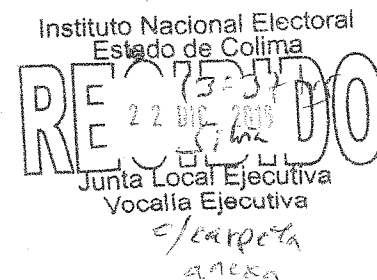 Instituto Nacional Electoral
Estado de Colima
RECIBIDO
22 DIC 2015
Junta Local Ejecutiva
Vocalía Ejecutiva
c/carpeta
anexa